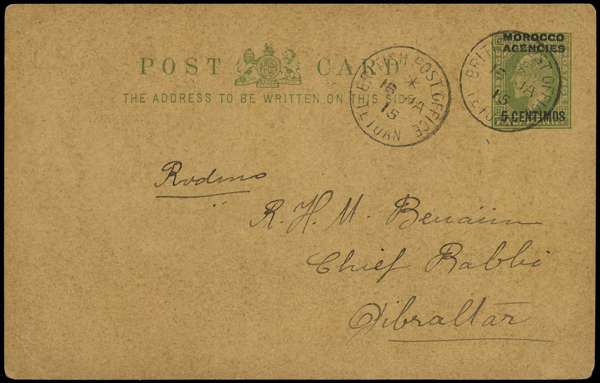 MOROCCO
AGENCIES
POST CARD
THE ADDRESS TO BE WRITTEN ON THIS SIDE
BRITISH POST OFFICE
16 JA
13
TETUAN
BRITISH POST OFFICE
JA
13
TETUAN
5 CENTIMOS
R. H. M. Benaiim
Chief Rabbi
Gibraltar